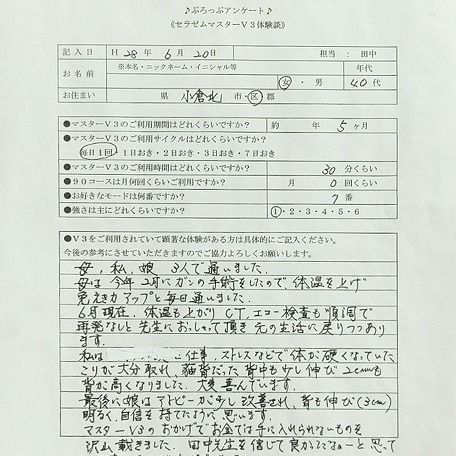 ♪ぷろっぷアンケート♪
《セラゼムマスターV3体験談》
記入日 H28年 6月 20日 担当：田中
お名前 ※本名・ニックネーム・イニシャル等 女・男 年代 40代
お住まい 県 小倉北 市・区 郡
●マスターV3のご利用期間はどれくらいですか？ 約 年 5ヶ月
●マスターV3のご利用サイクルはどれくらいですか？
毎日1回・1日おき・2日おき・3日おき・7日おき
●マスターV3のご利用時間はどれくらいですか？ 30分くらい
●90コースは月何回くらいご利用ですか？ 月 0回くらい
●お好きなモードは何番ですか？ 7番
●強さは主にどれくらいですか？ 1・2・3・4・5・6
●V3をご利用されていて顕著な体験がある方は具体的にご記入ください。
今後の参考にさせていただきますのでご協力よろしくお願いします。
母、私、娘 3人で通いました。
母は今年2月にガンの手術をしたので体温を上げ
免えき力アップと毎日通いました。
6月現在、体温も上がりCT、エコー検査も順調で
再発なしと先生におっしゃって頂き元の生活に戻りつつあり
ます。
私は 仕事、ストレスなどで体が硬くなっていた
こりが大分取れ、猫背だった背中も少し伸び2cmも
背が高くなりました。大変喜んでいます。
最後に娘はアトピーが少し改善され、背も伸び(3cm)
明るく、自信を持てたように思います。
マスターV3のおかげでお金では手に入れられないものを
沢山戴きました。田中先生を信じて良かったなぁーと思って